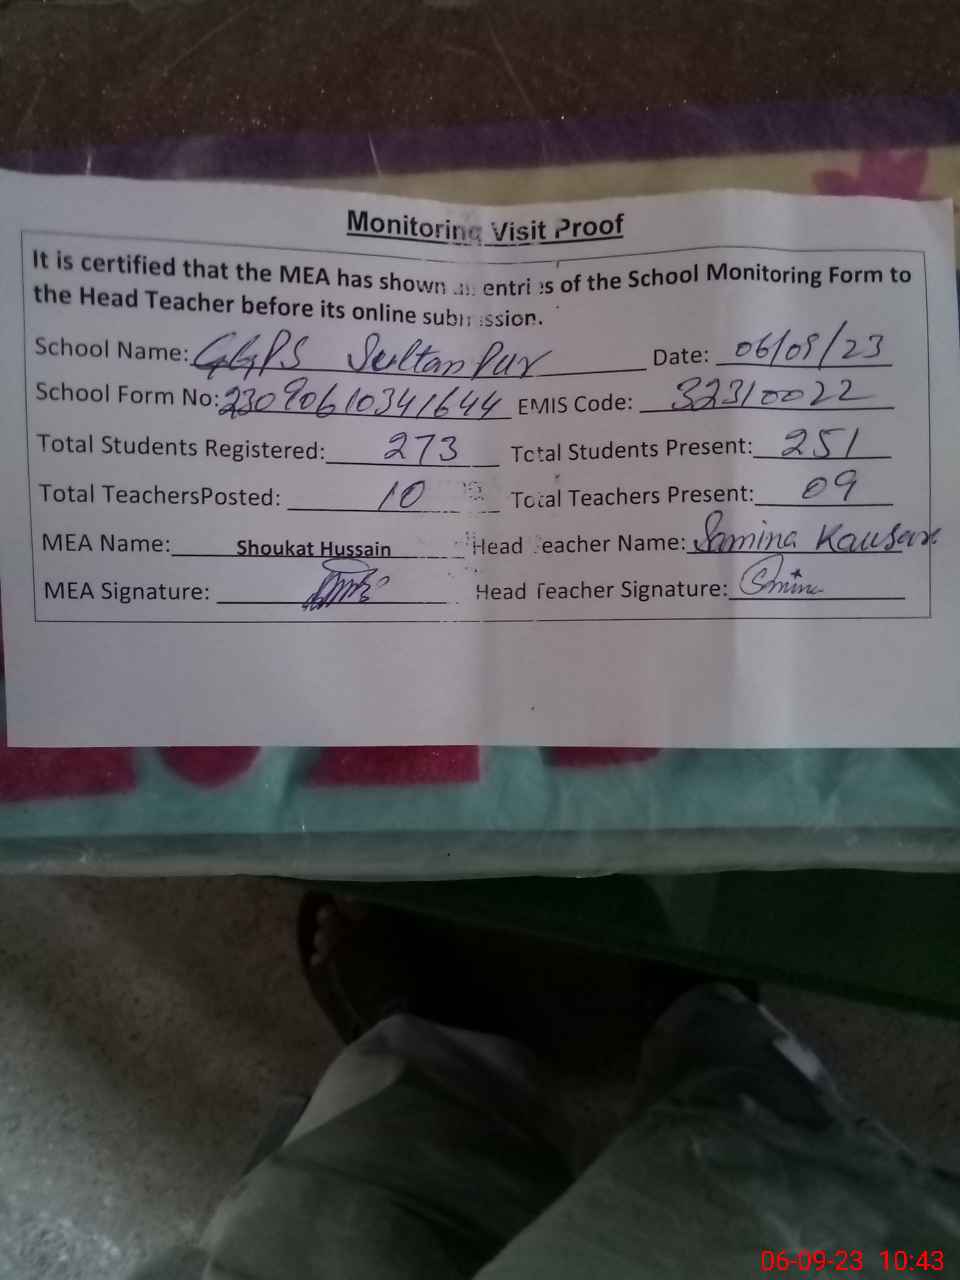 Monitoring Visit Proof
It is certified that the MEA has shown entries of the School Monitoring Form to
the Head Teacher before its online submission.
School Name: GGPS Sultan Pur Date: 06/09/23
School Form No: 23090610341644 EMIS Code: 32310022
Total Students Registered: 273 Total Students Present: 251
Total TeachersPosted: 10 Total Teachers Present: 09
MEA Name: Shoukat Hussain Head Teacher Name: Samina Kausar
MEA Signature: Head Teacher Signature:
06-09-23 10:43